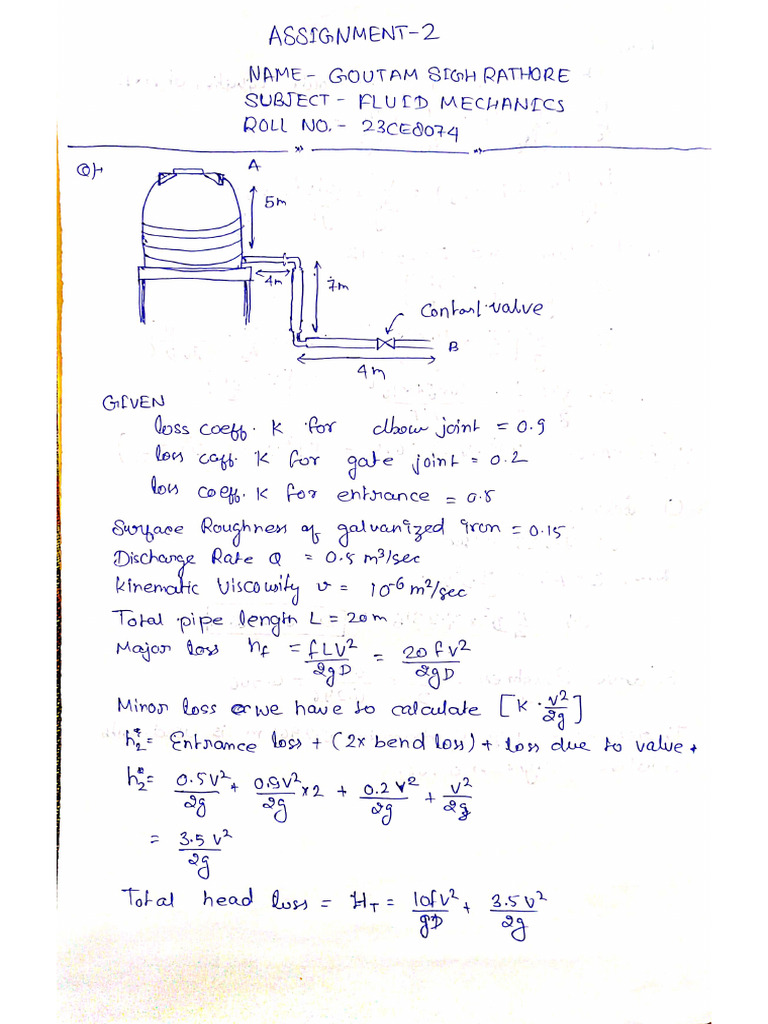 ASSIGNMENT-2
NAME - GOUTAM SIGH RATHORE
SUBJECT - FLUID MECHANICS
ROLL NO. - 23CE8074
Q)→
A
5m
4m
7m
Contorl valve
B
4m
GIVEN
loss coeff. K for elbow joint = 0.9
loss coeff. K for gate joint = 0.2
loss coeff. K for entrance = 0.5
Surface Roughness of galvanized iron = 0.15
Discharge Rate Q = 0.5 m³/sec
Kinematic Viscowity v = 10⁻⁶ m²/sec
Total pipe length L = 20m.
Major loss hf = fLV²/2gD = 20fv²/2gD
Minor loss we have to calculate [K · v²/2g]
h₂ = Entrance loss + (2x bend loss) + loss due to valve +
h₂ = 0.5v²/2g + 0.9v²/2g x2 + 0.2v²/2g + v²/2g
= 3.5v²/2g
Total head loss = HT = 10fv²/gD + 3.5v²/2g